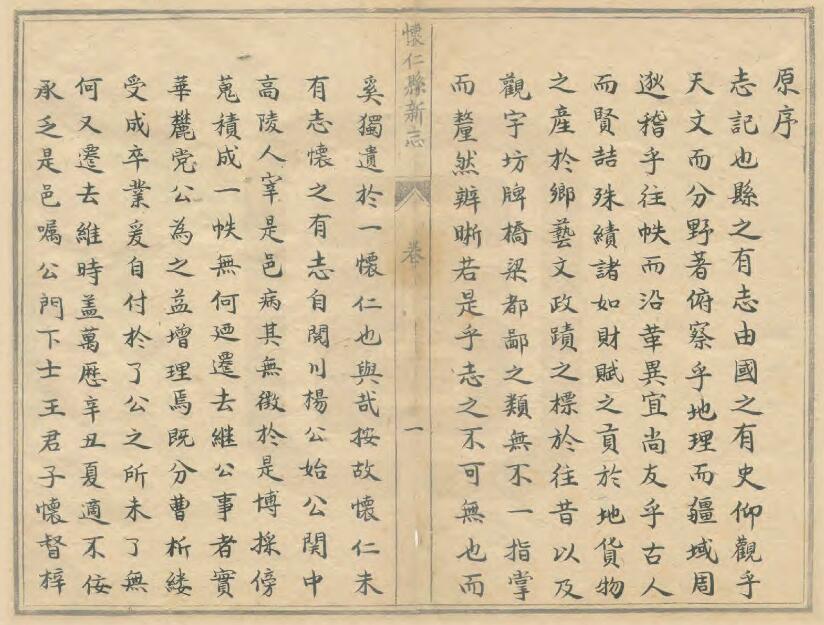 原序
志記也縣之有志由國之有史仰觀乎
天文而分野著俯察乎地理而疆域周
逖稽乎往帙而沿革異宜尚友乎古人
而賢喆殊績諸如財賦之貢於地貨物
之產於鄉藝文政蹟之標於往昔以及
觀宇坊牌橋梁都鄙之類無不一指掌
而釐然辨晣若是乎志之不可無也而
懷仁縣新志 卷 一
奚獨遺於一懷仁也與哉按故懷仁未
有志懷之有志自関川楊公始公関中
高陵人宰是邑病其無徵於是博採傍
蒐積成一帙無何迺遷去継公事者實
華麓党公為之益增理焉既分曹析縷
受成卒業爰自付於了公之所未了無
何又遷去維時盖萬厯辛丑夏適不佞
承乏是邑嘱公門下士王君子懷督梓